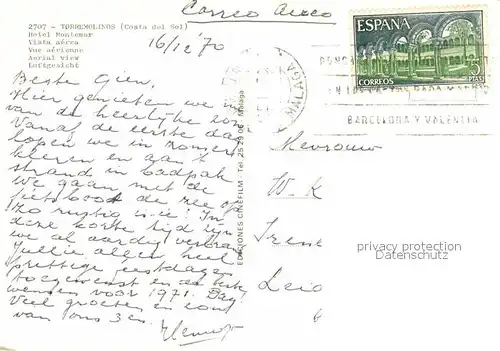 2707 - TORREMOLINOS (Costa del Sol)
Hotel Montemar
Vista aérea
Vue aérienne
Aerial view
Luftgesicht
Correo Aereo
16/12 '70
ESPAÑA
CORREOS
PTAS
MALAGA
BARCELONA Y VALENCIA
Beste Gien,
Hier genieten we
van de heerlijke zon
Vanaf de eerste dag
lopen we in zomer
kleren en aan 't
strand in badpak
We gaan met de
fietsboot de zee op
Zo rustig is ie! In
deze korte tijd zijn
we al aardig verbrand
Jullie allen heel
prettige feestdagen
toegewenst en de beste
wensen voor 1971. Dag
Veel groeten en zon
van ons 3en.
EDICIONES CINEFILM - Tel. 25 29 06 - Malaga
Mevrouw
W. K
Irene
Leid
privacy protection
Datenschutz